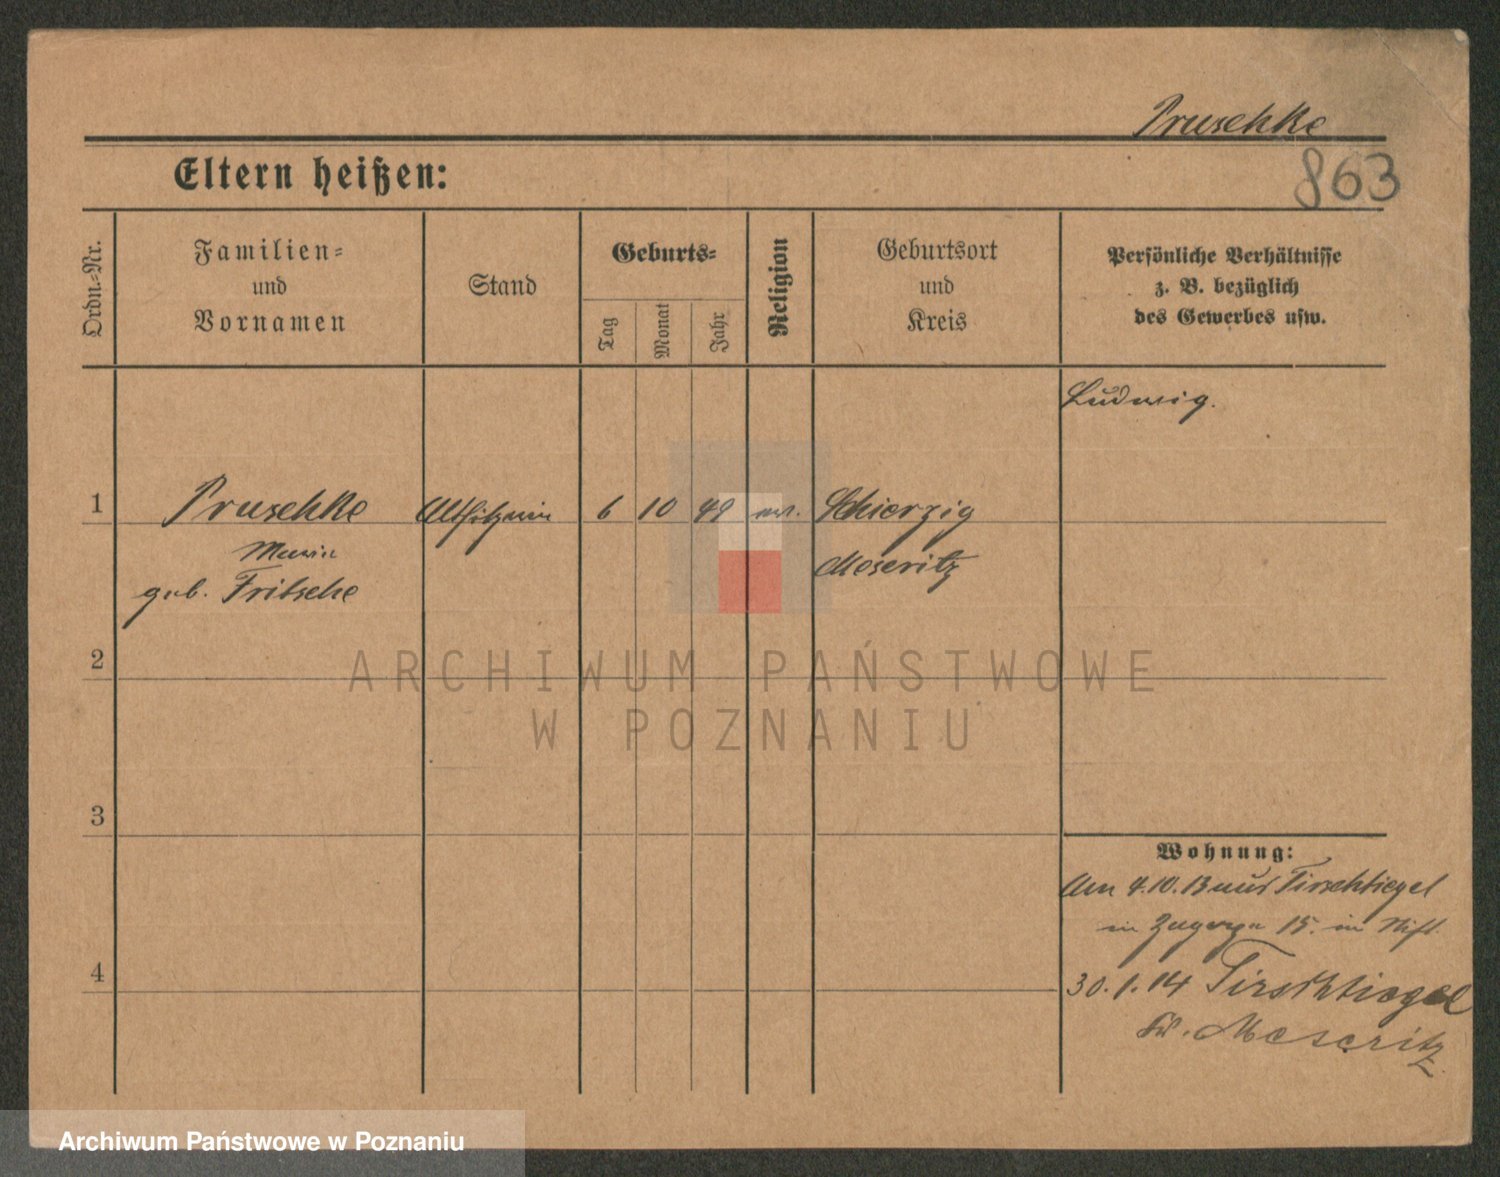 Pruschke
863
Eltern heißen:
Ordn.-Nr.
Familien-
und
Vornamen
Stand
Geburts-
Tag
Monat
Jahr
Religion
Geburtsort
und
Kreis
Persönliche Verhältnisse
z. B. bezüglich
des Gewerbes usw.
Ludwig.
1
Pruschke
Altsitzerin
6
10
49
ev.
Schierzig
Maria
Meseritz
geb. Fritsche
2
ARCHIWUM PAŃSTWOWE
W POZNANIU
3
Wohnung:
Am 4.10.13 aus Tirschtiegel
in 15. in
4
30.1.14 Tirschtiegel
Kr. Meseritz
Archiwum Państwowe w Poznaniu